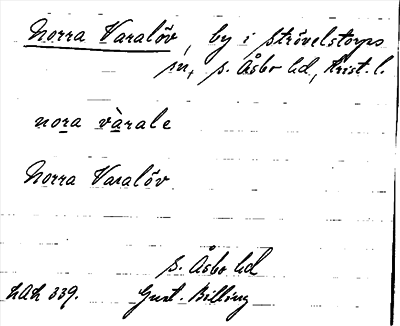 Norra Varalöv, by i Strövelstorps
sn, S. Åsbo hd, Krist. l.
nora vàrale
Norra Varalöv
S. Åsbo hd
LAL 339. Gust. Billing